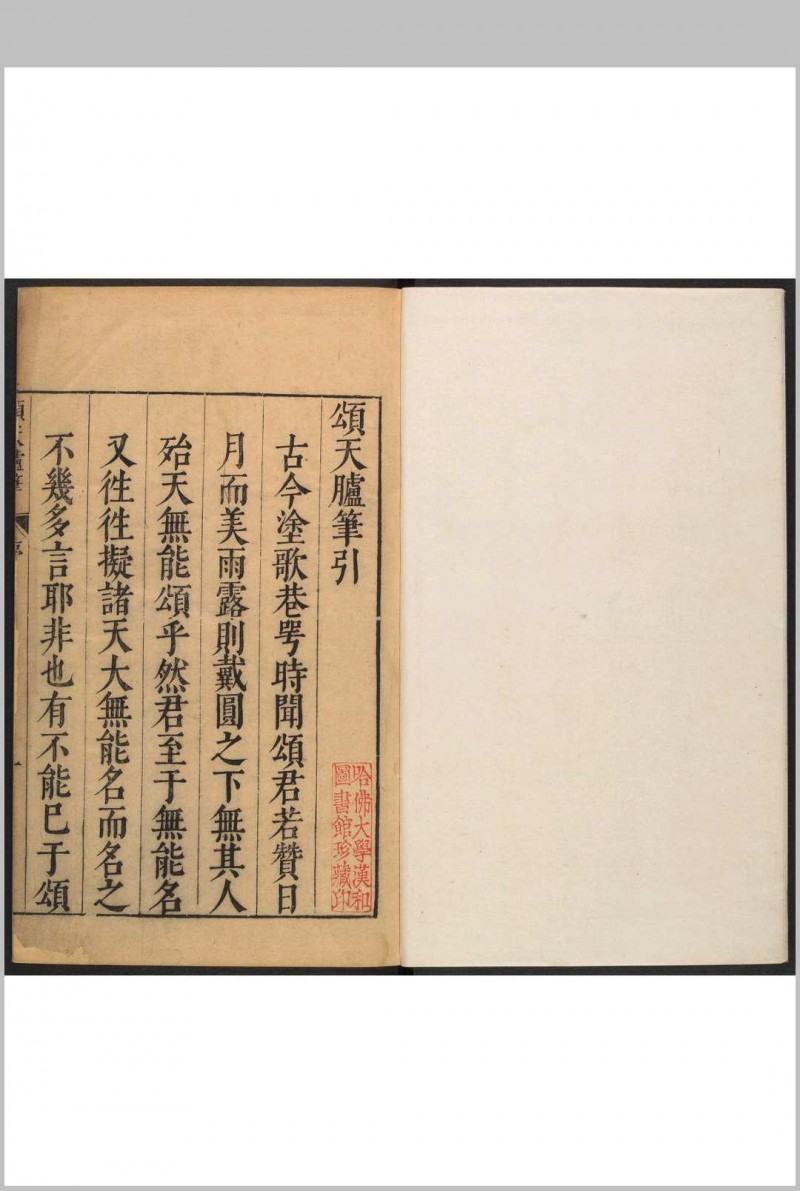 頌天臚筆引
古今塗歌巷咢時聞頌君若贊日
月而美雨露則戴圓之下無其人
殆天無能頌乎然君至于無能名
又徃徃擬諸天大無能名而名之
不幾多言耶非也有不能已于頌
哈佛大學漢和
圖書館珍藏印
序
一